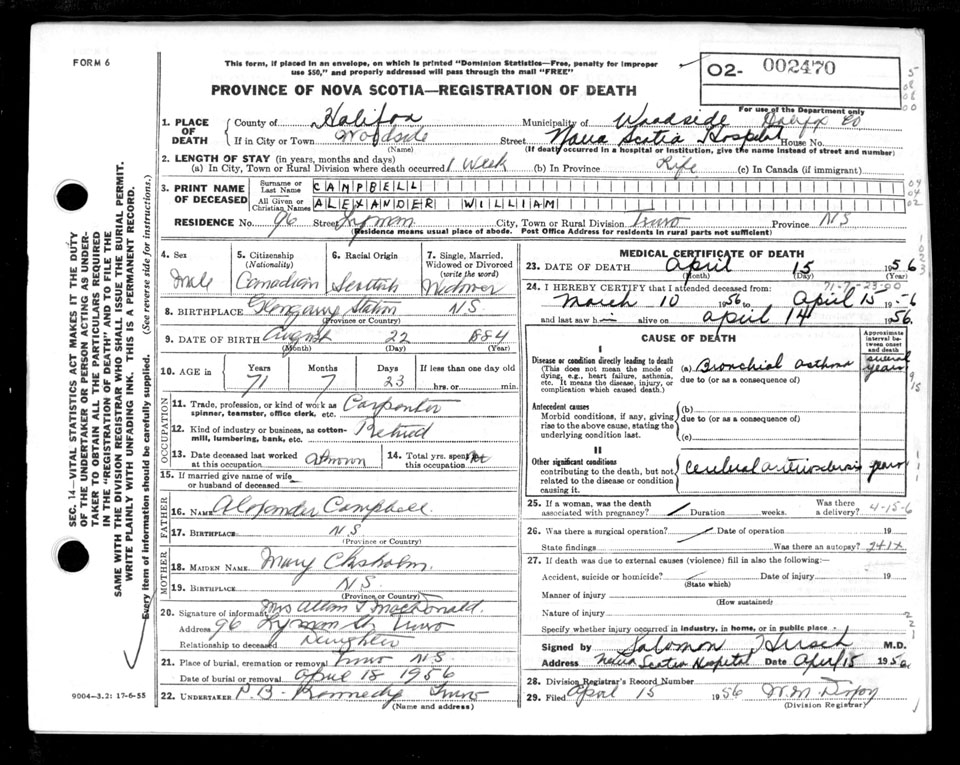 FORM 6
This form, if placed in an envelope, on which is printed "Dominion Statistics—Free, penalty for improper
use $50," and properly addressed will pass through the mail "FREE"
02- 002470
PROVINCE OF NOVA SCOTIA—REGISTRATION OF DEATH
For use of the Department only
1. PLACE OF DEATH
County of Halifax Municipality of Woodside Halifx Co
If in City or Town Woodside Street Nova Scotia Hospital House No.
(Name) (If death occurred in a hospital or institution, give the name instead of street and number)
2. LENGTH OF STAY (in years, months and days)
(a) In City, Town or Rural Division where death occurred 1 Week (b) In Province Life (c) In Canada (if immigrant)
3. PRINT NAME OF DECEASED
Surname or Last Name CAMPBELL
All Given or Christian Names ALEXANDER WILLIAM
RESIDENCE No. 96 Street Lyman City, Town or Rural Division Truro Province NS
(Residence means usual place of abode. Post Office Address for residents in rural parts not sufficient)
4. Sex
Male
5. Citizenship
(Nationality)
Canadian
6. Racial Origin
Scottish
7. Single, Married,
Widowed or Divorced
(write the word)
Widower
8. BIRTHPLACE Glengarry Station N.S.
(Province or Country)
9. DATE OF BIRTH August 22 1884
(Month) (Day) (Year)
10. AGE in Years Months Days If less than one day old
71 7 23 hrs. or min.
OCCUPATION
11. Trade, profession, or kind of work as Carpenter
spinner, teamster, office clerk, etc.
12. Kind of industry or business, as cotton-
mill, lumbering, bank, etc. Retired
13. Date deceased last worked
at this occupation
14. Total yrs. spent
this occupation
15. If married give name of wife
or husband of deceased
FATHER
16. Name Alexander Campbell
17. Birthplace N.S.
(Province or Country)
MOTHER
18. Maiden Name Mary Chisholm
19. Birthplace N.S.
(Province or Country)
20. Signature of informant Mrs Allan J MacDonald.
Address 96 Lyman St Truro
Relationship to deceased Daughter
21. Place of burial, cremation or removal Truro N.S.
Date of burial or removal April 18 1956
22. Undertaker P.B. Kennedy Truro
(Name and address)
MEDICAL CERTIFICATE OF DEATH
23. DATE OF DEATH April 15 1956
(Month) (Day) (Year)
71-7-23-00
24. I HEREBY CERTIFY that I attended deceased from:
March 10 1956 to April 15 -56
and last saw him alive on April 14 1956.
CAUSE OF DEATH
Approximate interval between onset and death
I
Disease or condition directly leading to death
(This does not mean the mode of
dying, e.g., heart failure, asthenia,
etc. It means the disease, injury, or
complication which caused death.)
(a) Bronchial asthma several years
due to (or as a consequence of)
Antecedent causes
Morbid conditions, if any, giving
rise to the above cause, stating the
underlying condition last.
(b)
due to (or as a consequence of)
(c)
II
Other significant conditions
contributing to the death, but not
related to the disease or condition
causing it.
Cerebral arteriosclerosis years
25. If a woman, was the death
associated with pregnancy? Duration weeks. Was there
a delivery? 4-15-6
26. Was there a surgical operation? Date of operation 19
State findings Was there an autopsy? 241X
27. If death was due to external causes (violence) fill in also the following:—
Accident, suicide or homicide? Date of injury 19
(State which)
Manner of injury
(How sustained)
Nature of injury
Specify whether injury occurred in industry, in home, or in public place
Signed by Solomon Hirsch M.D.
Address Nova Scotia Hospital Date April 15 1956
28. Division Registrar's Record Number
29. Filed April 15 1956 W.M.
(Division Registrar)
SEC. 14—VITAL STATISTICS ACT MAKES IT THE DUTY
OF THE UNDERTAKER OR PERSON ACTING AS UNDER-
TAKER TO OBTAIN ALL THE PARTICULARS REQUIRED
IN THE "REGISTRATION OF DEATH" AND TO FILE THE
SAME WITH THE DIVISION REGISTRAR WHO SHALL ISSUE THE BURIAL PERMIT.
WRITE PLAINLY WITH UNFADING INK. THIS IS A PERMANENT RECORD.
Every item of information should be carefully supplied. (See reverse side for instructions.)
9004-3.2: 17-6-55